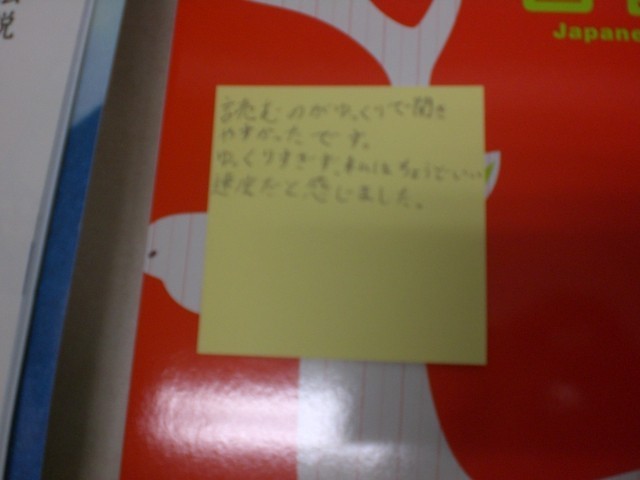 説
Japane
読むのがゆっくりで聞き
やすかったです。
ゆっくりすぎず、私にはちょうどいい
速度だと感じました。